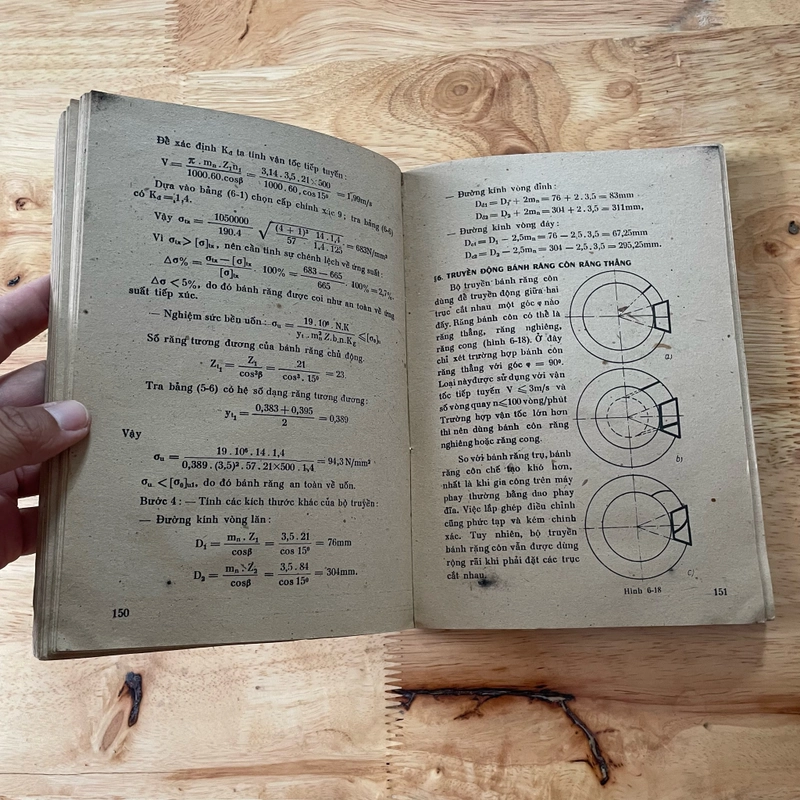 Để xác định K_d ta tính vận tốc tiếp tuyến :
V = π . m_n . Z_1 n_1 / 1000.60.cosβ = 3,14 . 3,5 . 21 × 500 / 1000 . 60 . cos 15° = 1,99m/s
Dựa vào bảng (6-1) chọn cấp chính xác 9 ; tra bảng (6-6)
có K_d = 1,4.
Vậy σ_tx = 1050000 / 190.4 √( (4 + 1)³ / 57 · 14 . 1,4 / 1,4 . 125 ) = 683N/mm²
Vì σ_tx > [σ]_tx, nên cần tính sự chênh lệch về ứng suất :
Δσ% = σ_tx − [σ]_tx / [σ]_tx . 100% = 683 − 665 / 665 . 100% = 2,7%.
Δσ < 5%, do đó bánh răng được coi như an toàn về ứng
suất tiếp xúc.
— Nghiệm sức bền uốn : σ_u = 19 . 10⁶ . N.K / y_1 . m_n² Z.b.n.K_ε ⩽ [σ_u],
Số răng tương đương của bánh răng chủ động.
Z_t1 = Z_1 / cos³β = 21 / cos³ . 15° = 23.
Tra bảng (5-6) có hệ số dạng răng tương đương :
y_t1 = 0,383 + 0,395 / 2 = 0,389
Vậy
σ_u = 19 . 10⁶ . 14 . 1,4 / 0,389 . (3,5)² . 57 . 21×500 . 1,4 = 94,3 N/mm²
σ_u < [σ_u]_u1, do đó bánh răng an toàn về uốn.
Bước 4 : — Tính các kích thước khác của bộ truyền :
— Đường kính vòng lăn :
D_1 = m_n . Z_1 / cosβ = 3,5 . 21 / cos 15° = 76mm
D_2 = m_n . Z_2 / cosβ = 3,5 . 84 / cos 15° = 304mm.
150
— Đường kính vòng đỉnh :
D_d1 = D_1 + 2m_n = 76 + 2 . 3,5 = 83mm
D_d2 = D_2 + 2m_n = 304 + 2 . 3,5 = 311mm,
— Đường kính vòng đáy :
D_c1 = D_1 − 2,5m_n = 76 − 2,5 . 3,5 = 67,25mm
D_c2 = D_2 − 2,5m_n = 304 − 2,5 . 3,5 = 295,25mm.
§6. TRUYỀN ĐỘNG BÁNH RĂNG CÔN RĂNG THẲNG
Bộ truyền bánh răng côn
dùng để truyền động giữa hai
trục cắt nhau một góc φ nào
đấy. Răng bánh côn có thể là
răng thẳng, răng nghiêng,
răng cong (hình 6-18). Ở đây
chỉ xét trường hợp bánh côn
răng thẳng với góc φ = 90°.
Loại này được sử dụng với vận
tốc tiếp tuyến V ⩽ 3m/s và
số vòng quay n ⩽ 100 vòng/phút
Trường hợp vận tốc lớn hơn
thì nên dùng bánh côn răng
nghiêng hoặc răng cong.
So với bánh răng trụ, bánh
răng côn chế tạo khó hơn,
nhất là khi gia công trên máy
phay thường bằng dao phay
đĩa. Việc lắp ghép điều chỉnh
cũng phức tạp và kém chính
xác. Tuy nhiên, bộ truyền
bánh răng côn vẫn được dùng
rộng rãi khi phải đặt các trục
cắt nhau.
a)
b)
c)
Hình 6-18
151